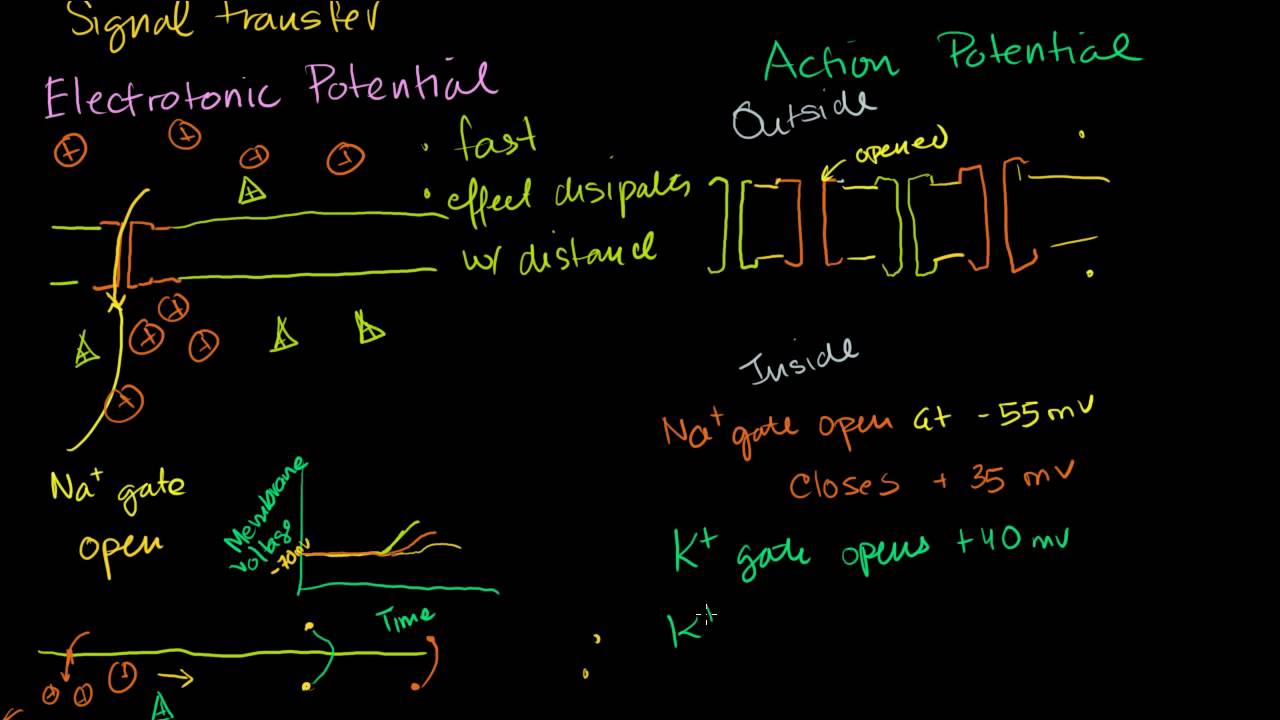 Signal transfer
Electrotonic Potential
• fast
• effect disipates
w/ distance
Na+ gate
open
Membrane
voltage
-70mv
Time
Action Potential
Outside
opened
Inside
Na+ gate open at -55mv
Closes + 35 mv
K+ gate opens +40 mv
K+